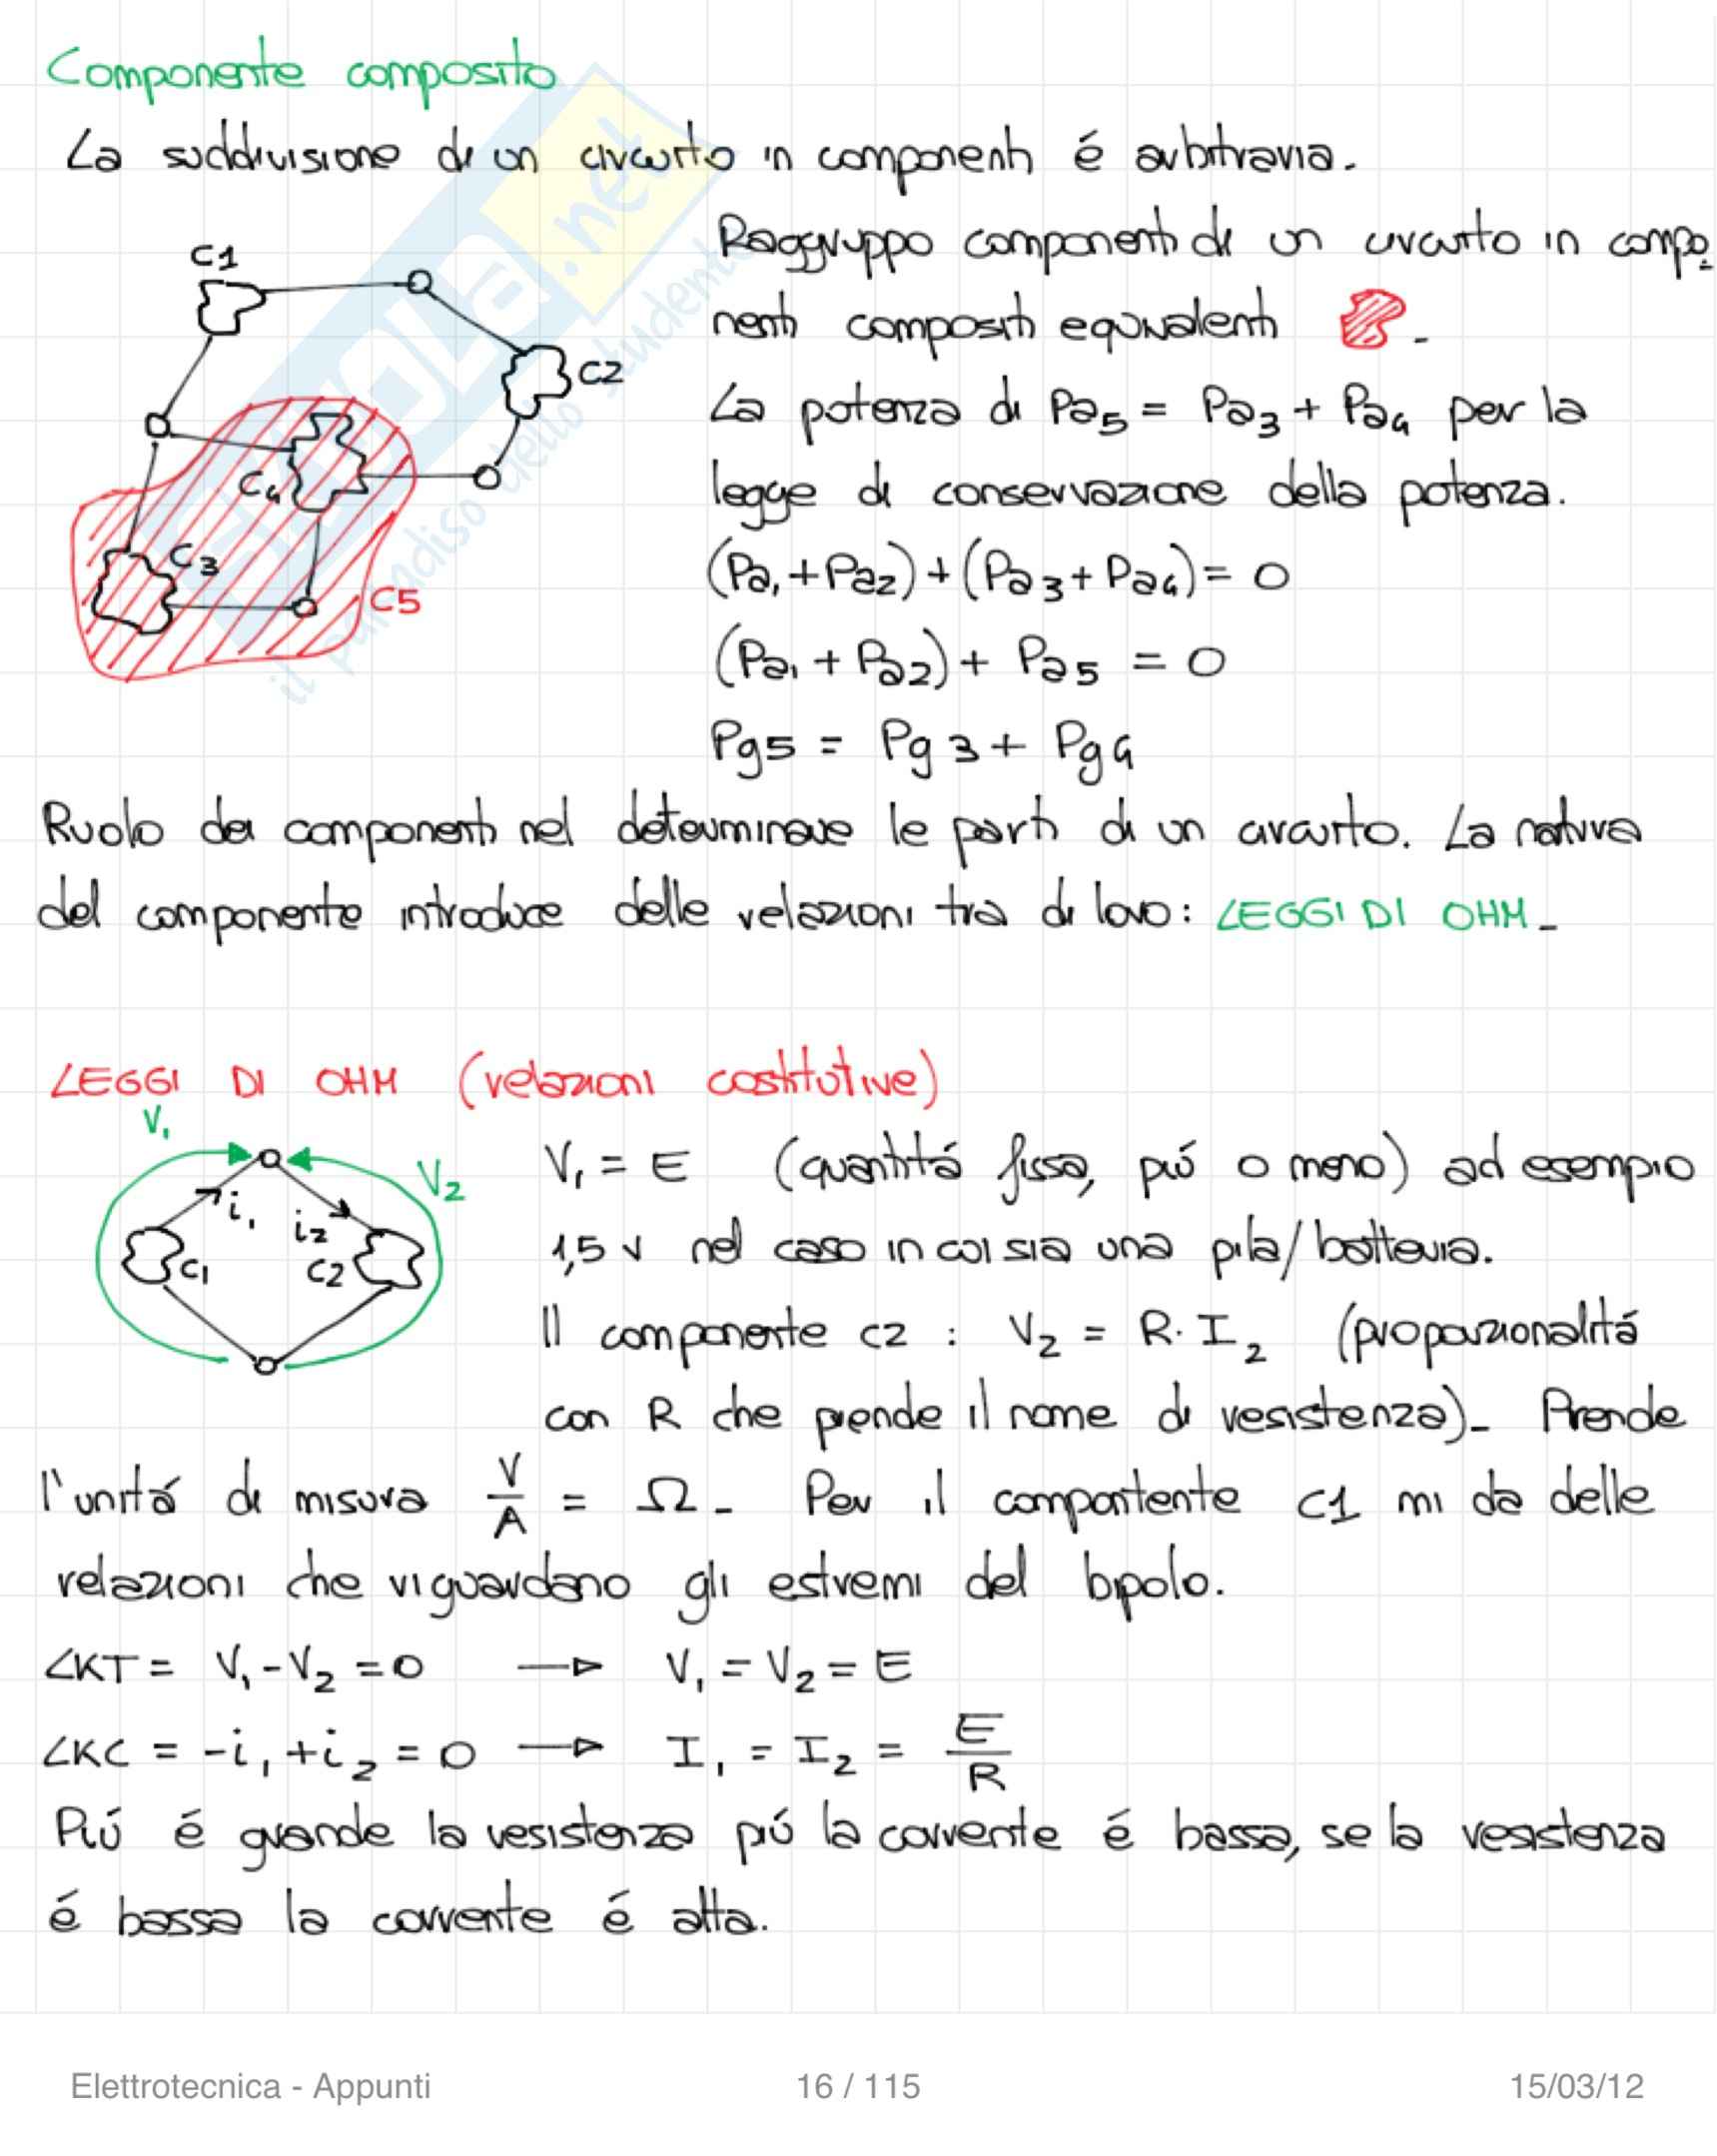 Componente composito
La suddivisione di un circuito in componenti é arbitraria.
Raggruppo componenti di un circuito in compo-
nenti compositi equivalenti .
C1
C2
C4
C3
C5
La potenza di Pa5 = Pa3 + Pa4 per la
legge di conservazione della potenza.
(Pa1 + Pa2) + (Pa3 + Pa4) = 0
(Pa1 + Pa2) + Pa5 = 0
Pg5 = Pg3 + Pg4
Ruolo dei componenti nel determinare le parti di un circuito. La natura
del componente introduce delle relazioni tra di loro: LEGGI DI OHM.
LEGGI DI OHM (relazioni costitutive)
V1
V2
i1
i2
C1
C2
V1 = E (quantitá fissa, piú o meno) ad esempio
1,5 V nel caso in cui sia una pila/batteria.
Il componente C2 : V2 = R · I2 (proporzionalitá
con R che prende il nome di resistenza). Prende
l'unitá di misura V/A = Ω. Per il comportente C1 mi da delle
relazioni che riguardano gli estremi del bipolo.
LKT = V1 - V2 = 0 → V1 = V2 = E
LKC = -i1 + i2 = 0 → I1 = I2 = E/R
Piú é grande la resistenza piú la corrente é bassa, se la resistenza
é bassa la corrente é alta.
Elettrotecnica - Appunti
16 / 115
15/03/12
SKUOLA.net
il paradiso dello studente